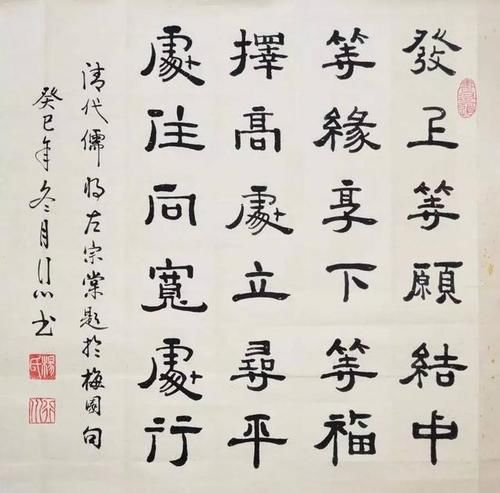 發上等願結中
等緣享下等福
擇高處立尋平
處住向寬處行
清代儒将左宗棠題於梅園句
癸巳年冬月行心书